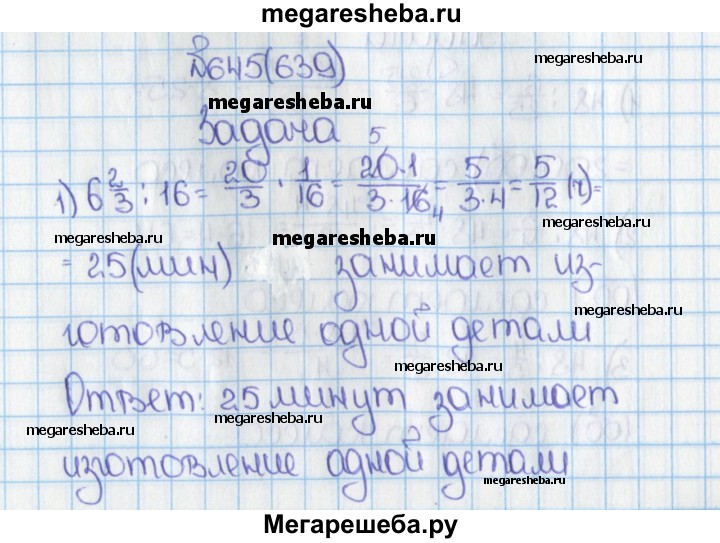 megaresheba.ru
№645(639)
megaresheba.ru
megaresheba.ru
Задача
1) 6 2/3 : 16 = 20/3 · 1/16 = 20·1/3·16 = 5/3·4 = 5/12 (ч) =
5
4
megaresheba.ru
megaresheba.ru
= 25 (мин) занимает из-
megaresheba.ru
готовление одной детали
megaresheba.ru
Ответ: 25 минут занимает
megaresheba.ru
megaresheba.ru
изготовление одной детали
megaresheba.ru
Мегарешеба.ру